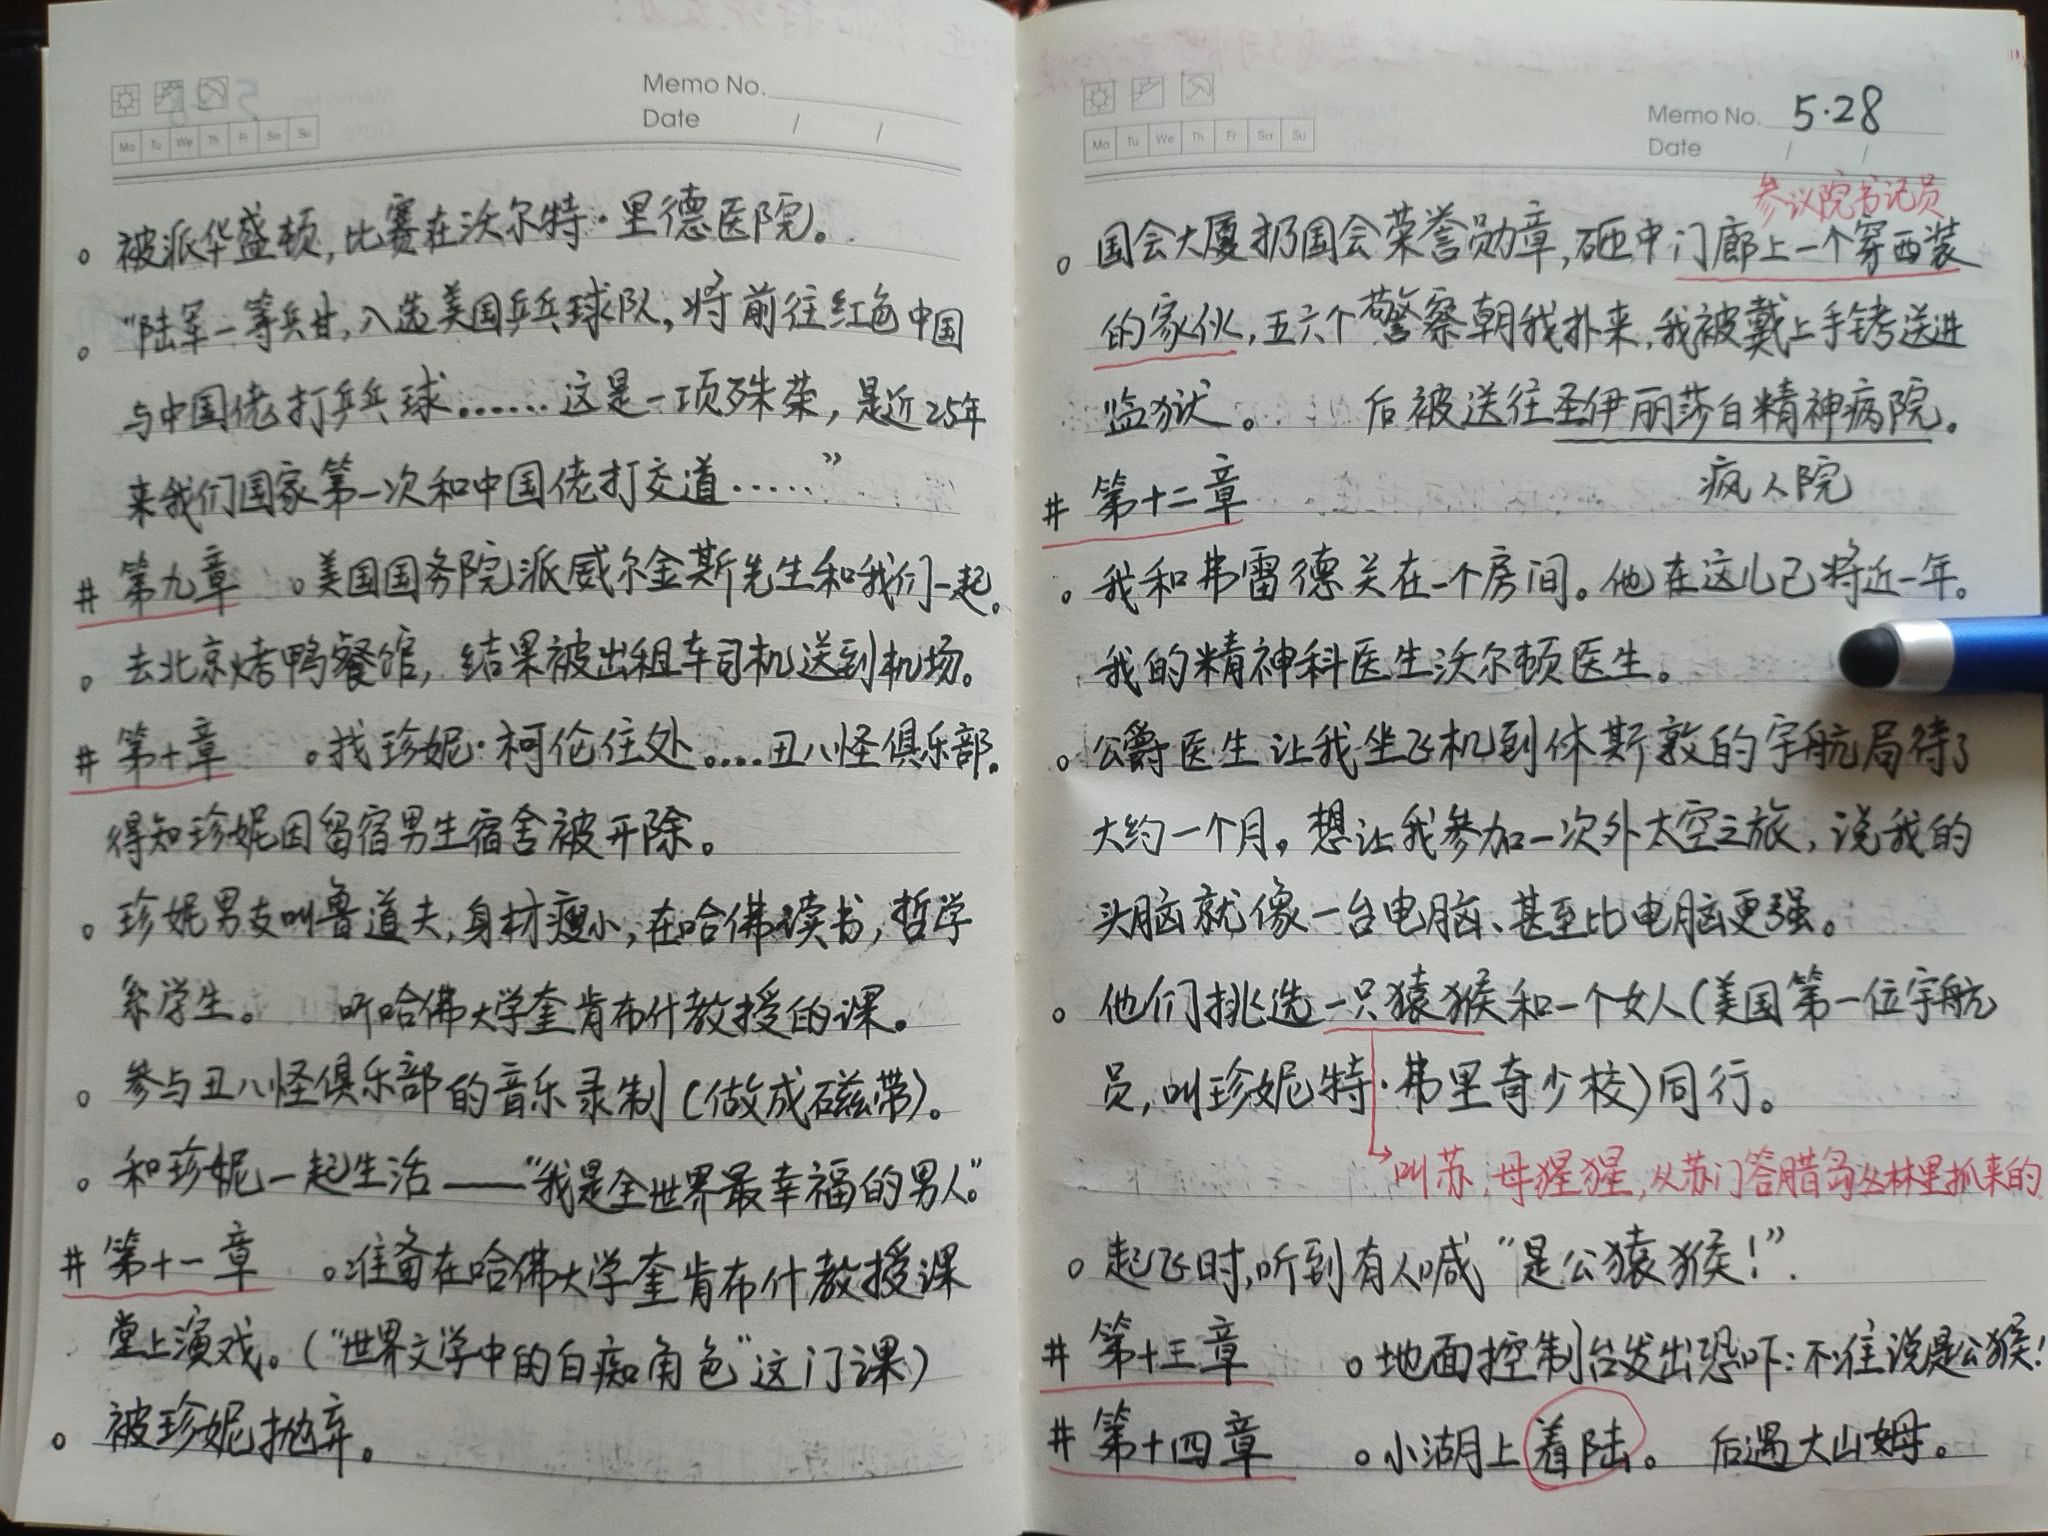 Memo No.
Date / /
Mo Tu We Th Fr Sa Su
。被派华盛顿,比赛在沃尔特·里德医院。
。“陆军一等兵甘,入选美国乒乓球队,将前往红色中国
与中国佬打乒乓球……这是一项殊荣,是近25年
来我们国家第一次和中国佬打交道……”
# 第九章 。美国国务院派威尔金斯先生和我们一起。
。去北京烤鸭餐馆,结果被出租车司机送到机场。
# 第十章 。找珍妮·柯伦住处。…丑八怪俱乐部。
得知珍妮因留宿男生宿舍被开除。
。珍妮男友叫鲁道夫,身材瘦小,在哈佛读书,哲学
系学生。 听哈佛大学奎肯布什教授的课。
。参与丑八怪俱乐部的音乐录制(做成磁带)。
。和珍妮一起生活——“我是全世界最幸福的男人。”
# 第十一章 。准备在哈佛大学奎肯布什教授课
堂上演戏。(“世界文学中的白痴角色”这门课)
。被珍妮抛弃。
Memo No. 5·28
Date / /
Mo Tu We Th Fr Sa Su
参议院书记员
。国会大厦扔国会荣誉勋章,砸中门廊上一个穿西装
的家伙,五六个警察朝我扑来,我被戴上手铐送进
监狱。 后被送往圣伊丽莎白精神病院。
# 第十二章 疯人院
。我和弗雷德关在一个房间。他在这儿已将近一年。
我的精神科医生沃尔顿医生。
。公爵医生让我坐飞机到休斯敦的宇航局待了
大约一个月。想让我参加一次外太空之旅,说我的
头脑就像一台电脑、甚至比电脑更强。
。他们挑选一只猿猴和一个女人(美国第一位宇航
员,叫珍妮特·弗里奇少校)同行。
叫苏,母猩猩,从苏门答腊岛丛林里抓来的。
。起飞时,听到有人喊“是公猿猴!”.
# 第十三章 。地面控制台发出恐吓:不准说是公猴!
# 第十四章 。小湖上着陆。 后遇大山姆。